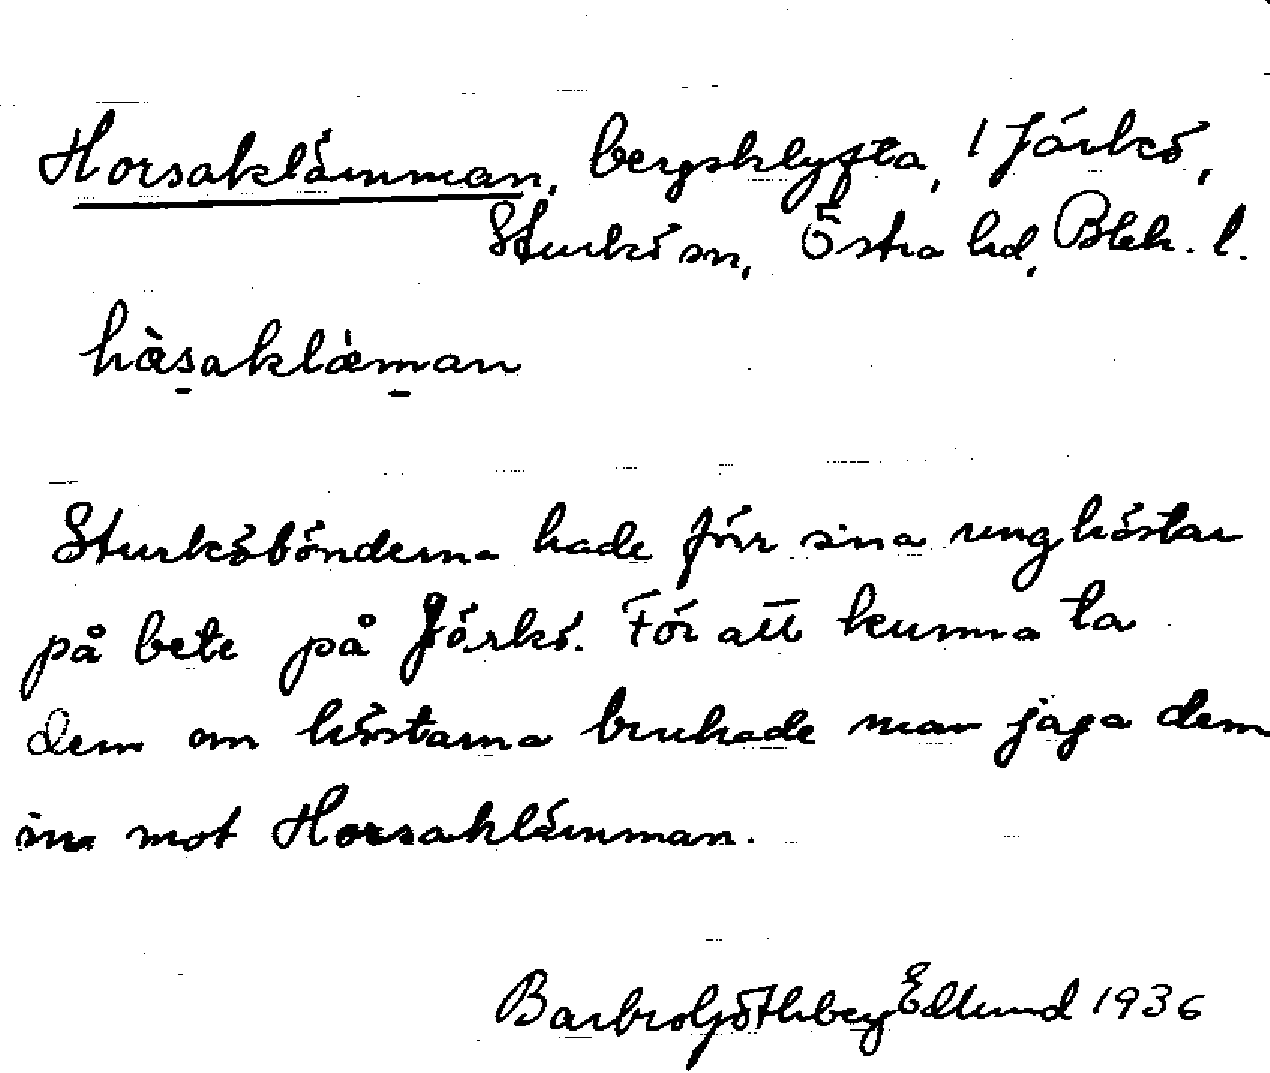 Horsaklämman, bergsklyfta, 1 Järkö,
Sturkö sn, Östra hd, Blek. l.
hàsaklàman
Sturköbönderna hade förr sina unghästar
på bete på Järkö. För att kunna ta
dem om höstarna brukade man jaga dem
in mot Horsaklämman.
Barbro Göthberg Edlund 1936